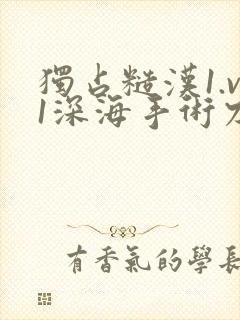 獨占糙漢1.v
1深海手術刀
有香氣的學長